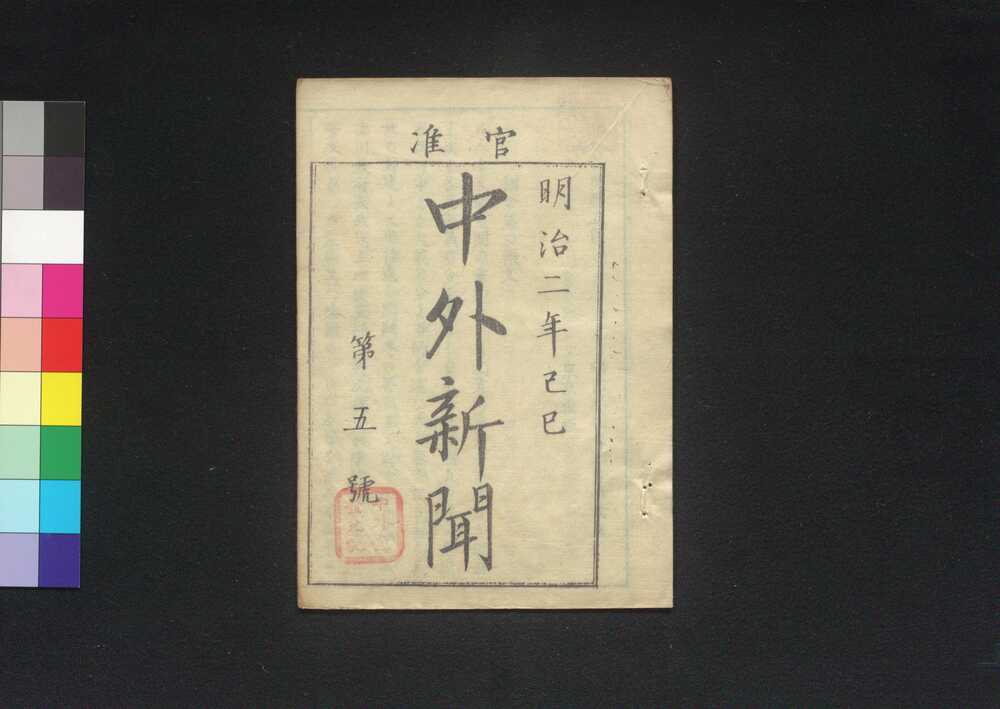 官准
明治二年己巳
中外新聞
第五號